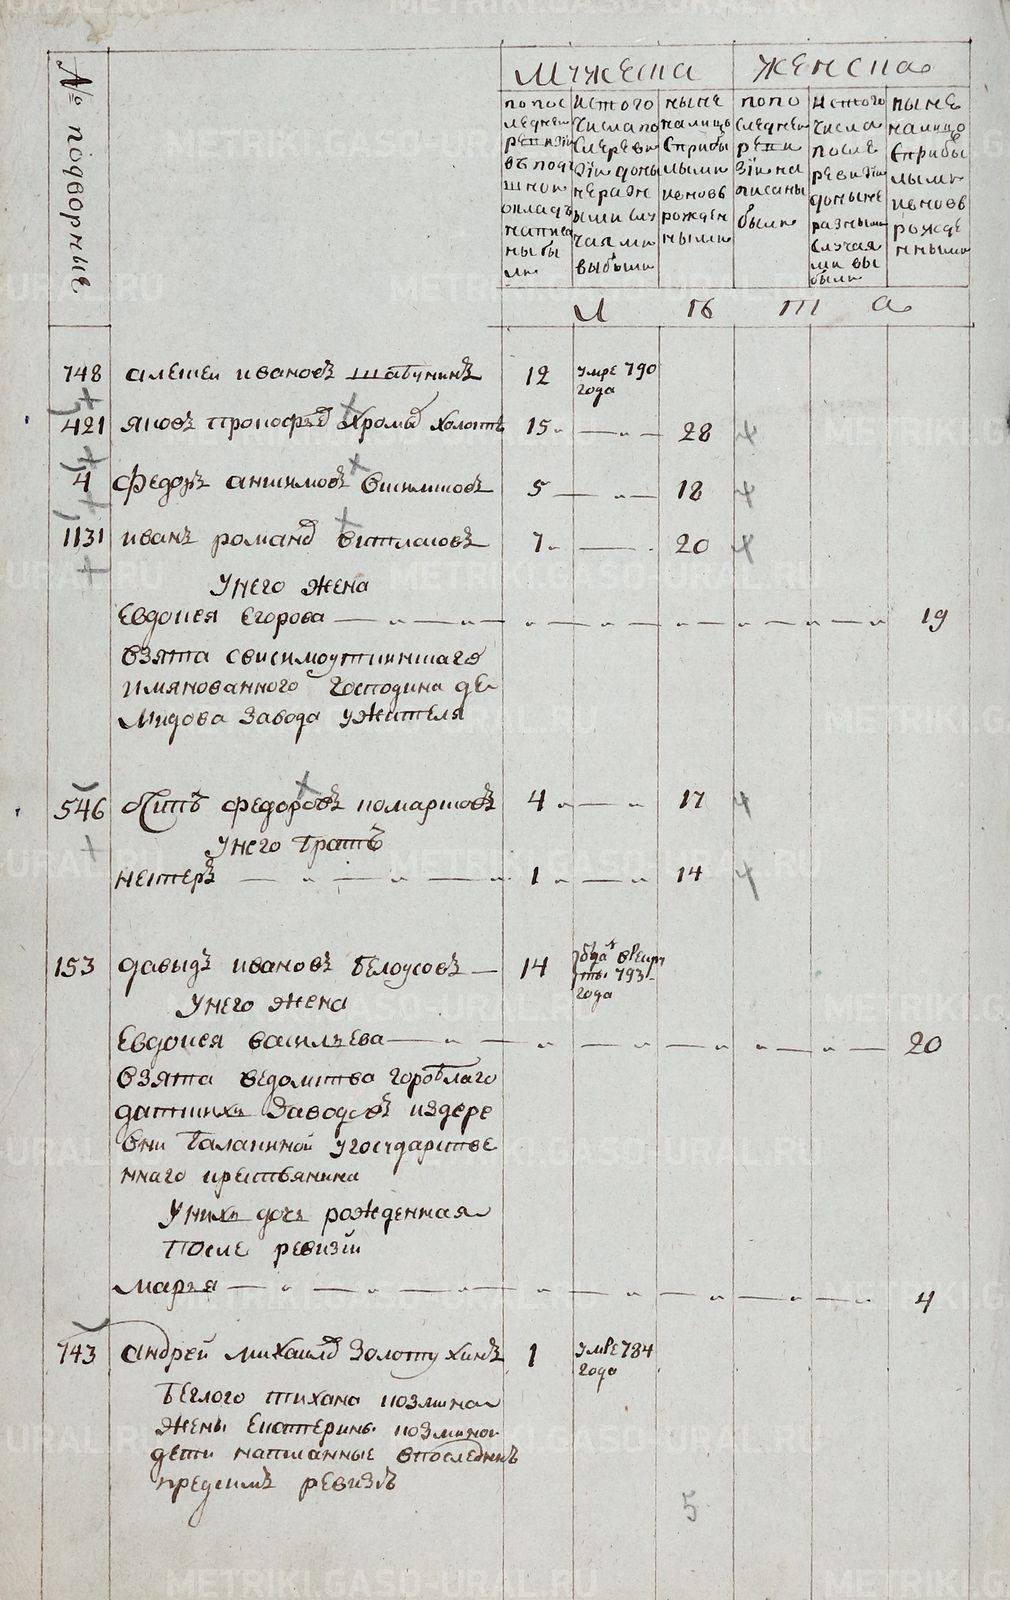 № подворные
мужеска
женска
попос
леднеи
ревизiи
въ поду
шнои
окладъ
написа
ны бы
ли
Истого
числа по
слереви
зiи доны
не разн
ыми слу
чаями
выбыли
ныне
налицо
сприбы
лыми
ивновь
рожден
ными
попо
следнеи
реви
зiи на
писаны
были
Истого
числа
после
ревизiи
доныне
разными
случая
ми вы
были
ныне
налицо
сприбы
лыми
ивновь
рожде
нными
л ѣ т а
748 алексеи ивановъ шабунинъ 12 умре 790
года
421 яковъ прокофьев Хромы 15 28
4 федоръ анисимовъ 5 18
1131 иванъ романов 7 20
унего жена
Евдокея Егорова 19
взята
имянованного господина де
мидова завода ужителя
546 федоровъ комаровъ 4 17
унего братъ
нестеръ 1 14
153 давыдъ ивановъ белоусовъ 14 793
года
унего жена
Евдокея васильева 20
взята ведомства гороблаго
датскихъ заводовъ издере
вни балакиной угосударстве
ннаго крестьянина
унихъ дочь рожденная
после ревизiи
марья 4
743 андреи михаилов золотухинъ 1 умре 784
года
беглого тихана козмина
жены Екатерины козминои
дети написанные впоследнюъ
предсимъ ревизiю
5
METRIKI.GASO-URAL.RU